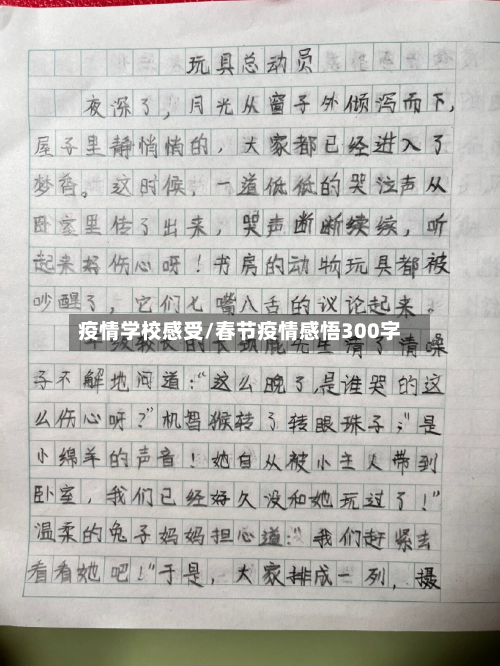 玩具总动员
夜深了，月光从窗子外倾泻而下，
屋子里静悄悄的，大家都已经进入了
梦。这时候，一道低低的哭泣声从
卧室里传了出来，哭声断断续续，听
起来好伤心呀！书房的动物玩具都被
吵醒了，它们七嘴八舌的议论起来。
疫情学校感受/春节疫情感悟300字
长颈鹿先生清了清嗓
子不解地问道：“这么晚了，是谁哭的这
么伤心呀？”机智猴转了转眼珠子：“是
小绵羊的声音！她自从被小主人带到
卧室，我们已经好久没和她玩过了！”
温柔的兔子妈妈担心道：“我们赶紧去
看看她吧！”于是，大家排成一列，摄